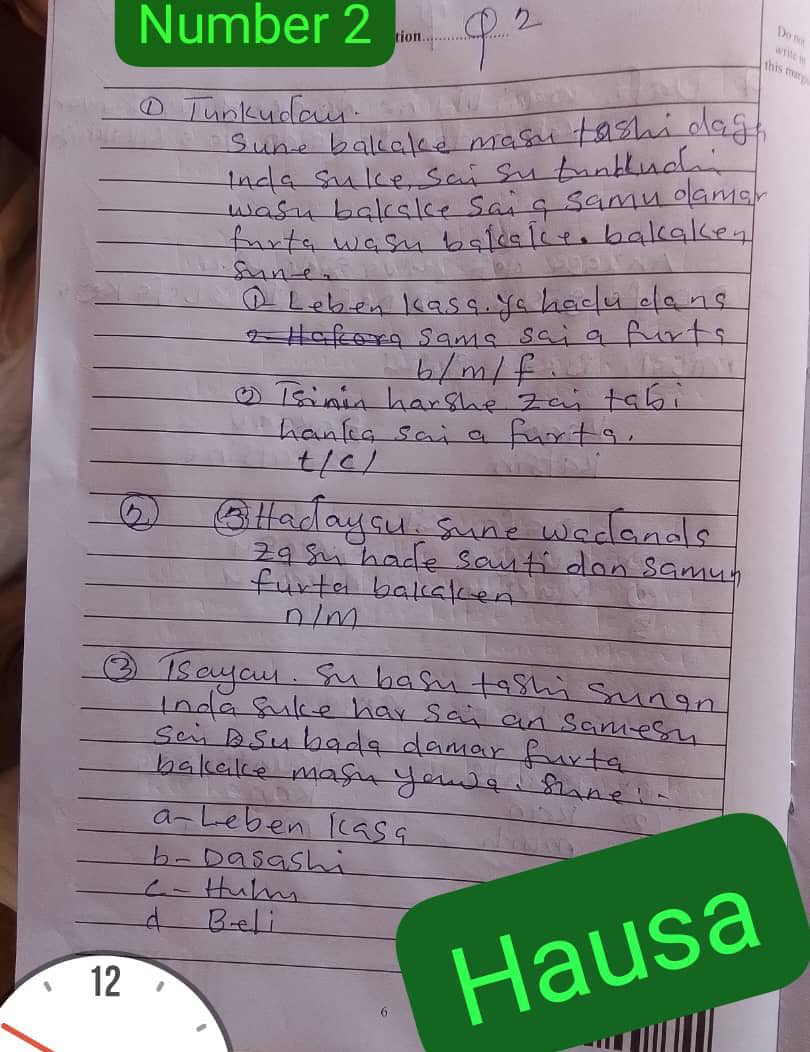 Number 2
tion................... Q 2
Do not
write in
this margin
① Tunkudau.
Sune bakake masu tashi daga
inda suke, sai su tunkudi
wasu bakake sai a samu damar
furta wasu bakake. bakaken
sune.
① Leben kasa. ya hadu dana
2 Hakora sama sai a furta
b/m/f.
② Tsinin harshe zai tabi
hanka sai a furta.
t/c/
② ③ Hadaygu. sune wadanda
za su hade sauti don samun
furta bakaken
n/m
③ Tsayau. su basu tashi sunan
inda suke har sai an samesu
sai su bada damar furta
bakake masu yawa. sune:-
a-Leben kasa
b- Dasashi
c- Hulu
d Beli
6
Hausa
12